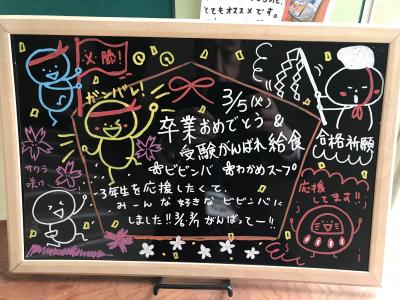 とてもオススメです。
必勝!
ガンバレ!
3/5(火)
卒業おめでとう&
受験がんばれ給食
合格祈願
ビビンバ わかめスープ
サクラ
咲け
3年生を応援したくて、
みーんな好きなビビンバに
しました!! がんばってー!!
応援
してます!!